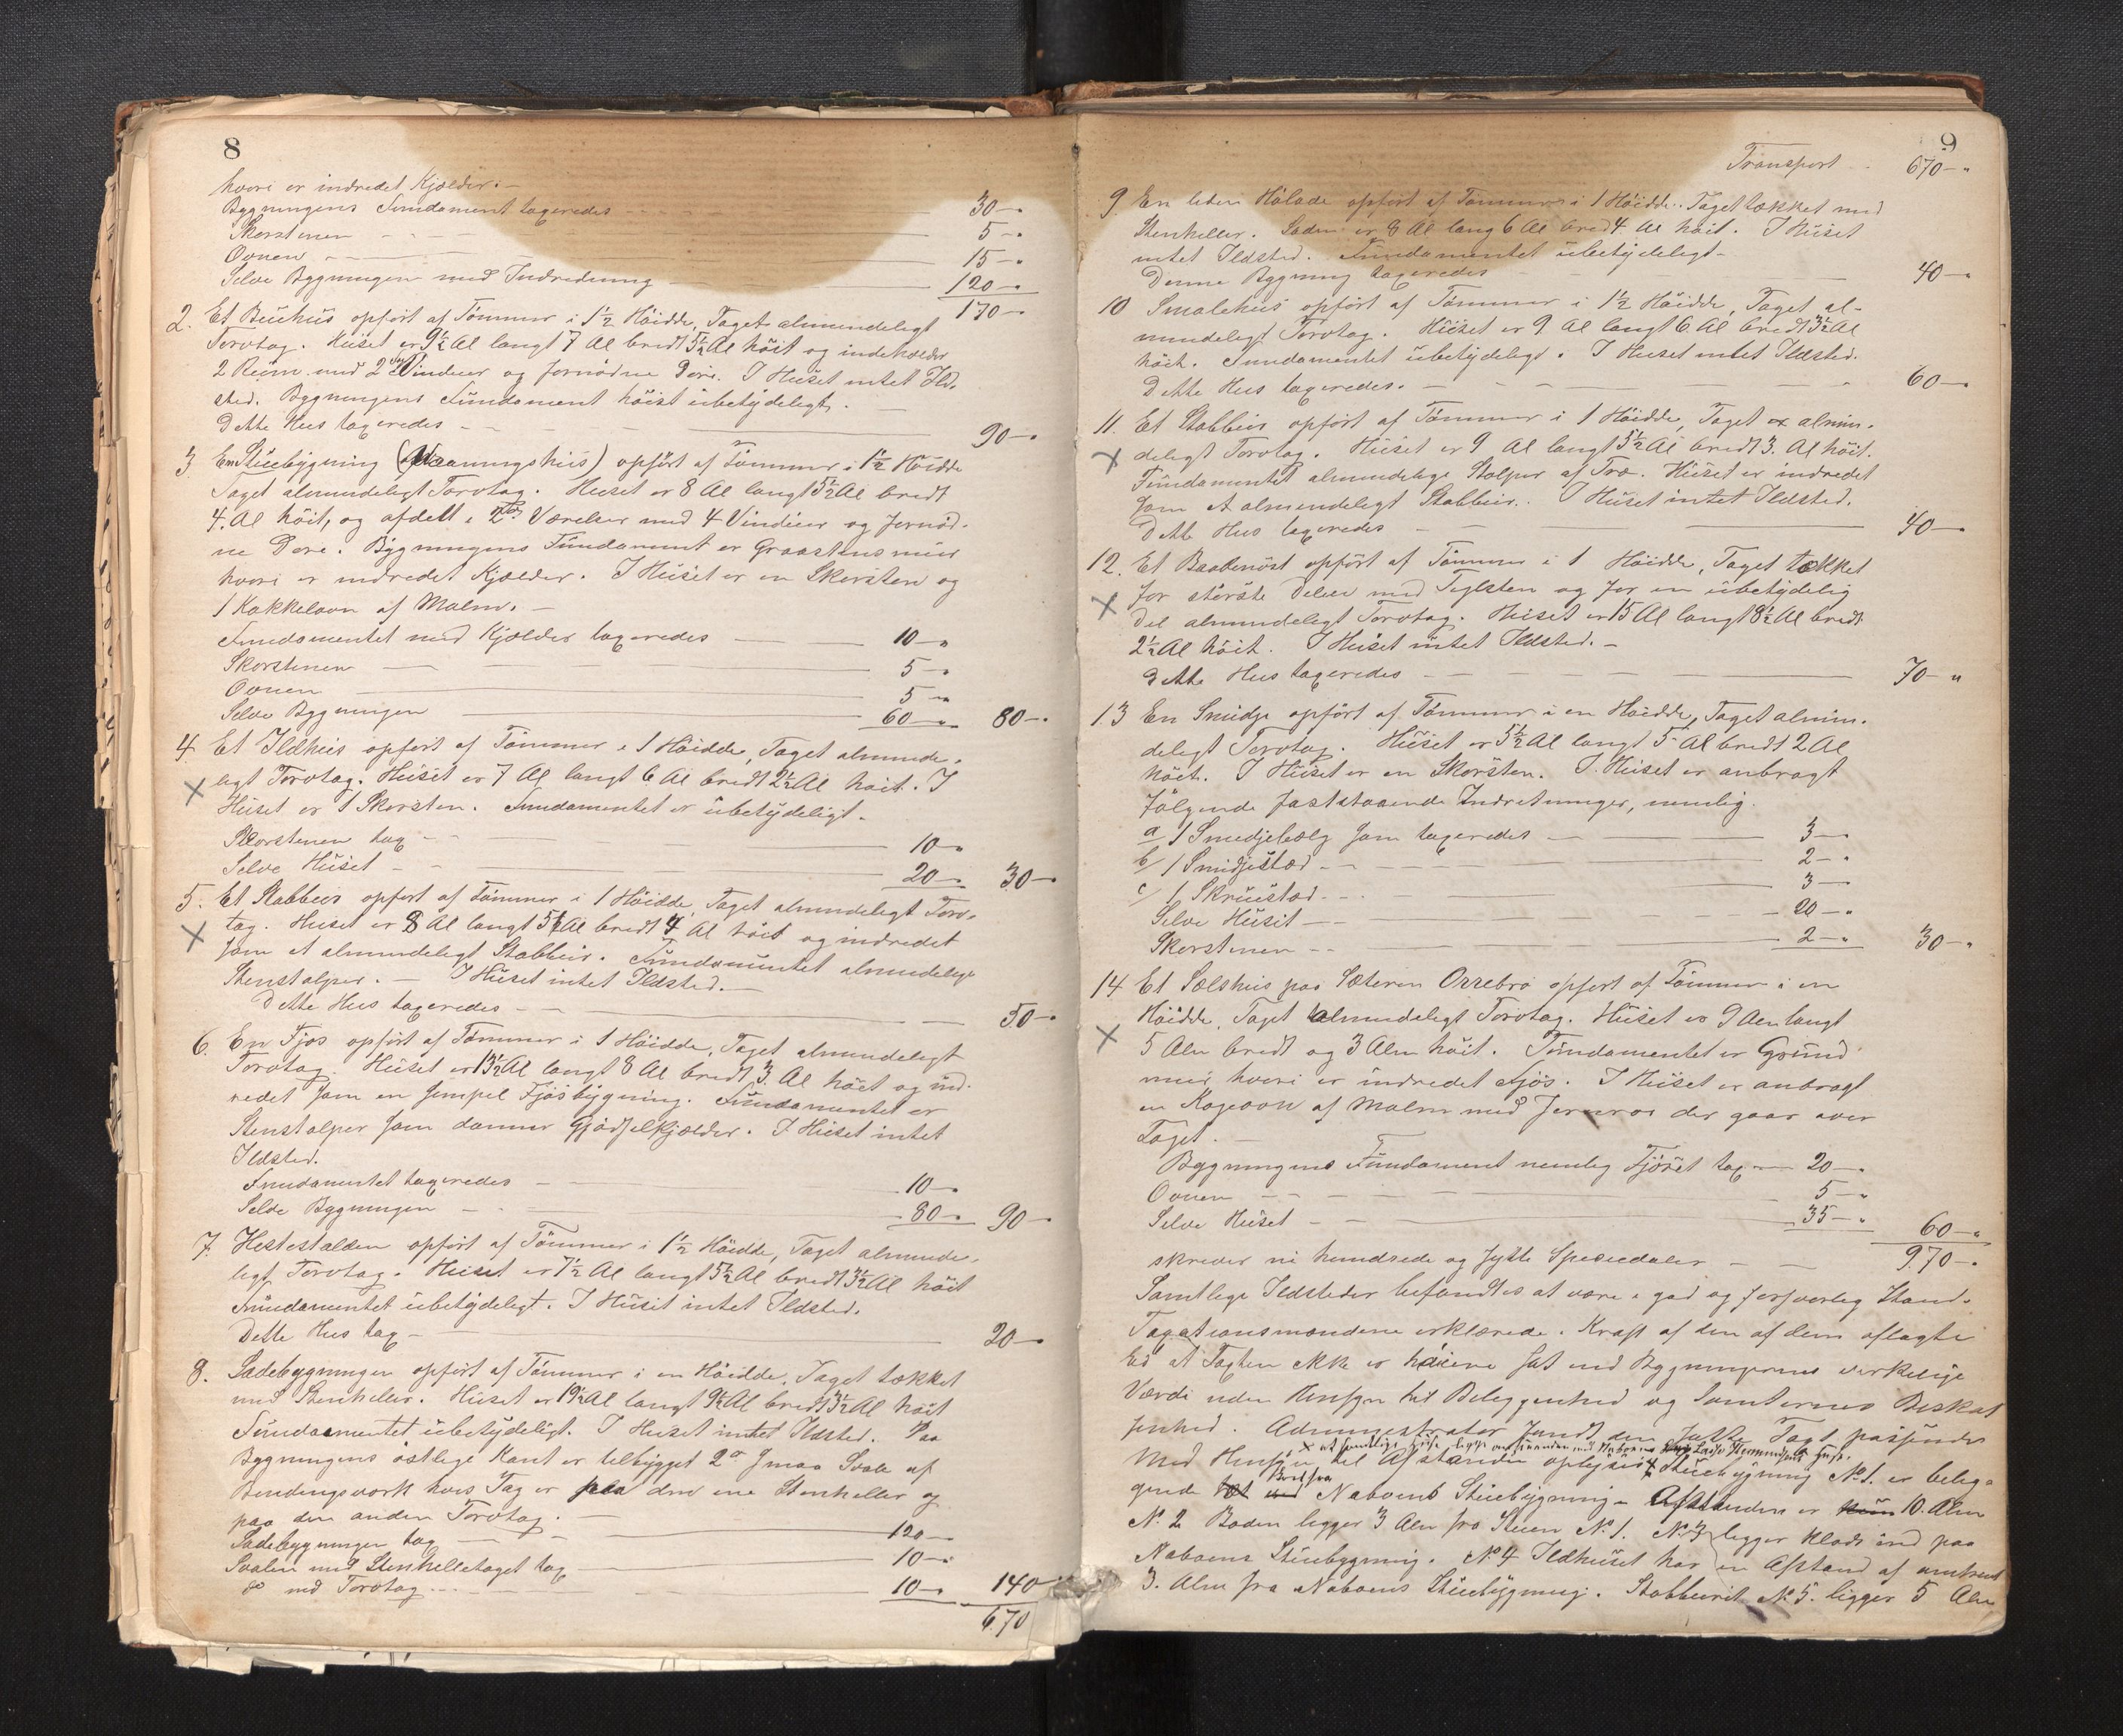 8
hvori er indredet Kjælder. —
Bygningens Fundament taxeredes — 30 — "
Skorstenen — 5 — "
Ovnen — 15 — "
Selve Bygningen med Indredning — 120 — "
170 — "
2. Et Buehus opført af Tømmer i 1½ Høidde, Taget almindeligt
Torvtag. Huset er 9½ Al langt 7 Al bredt 5½ Al høit og indeholder
2 Rum med 2 Vinduer og fornødne Døre. I Huset intet Ild-
sted. Bygningens Fundament høist ubetydeligt. —
Dette Hus taxeredes — 90 — "
3 En Stuebygning (Vaaningshus) opført af Tømmer i 1½ Høidde
Taget almindeligt Torvtag. Huset er 8 Al langt 5½ Al bredt
4. Al høit, og afdelt i 2de Værelser med 4 Vinduer og fornød-
ne Døre. Bygningens Fundament er Graastensmuur
hvori er indredet Kjælder. I Huset er en Skorsten og
1 Kakkelovn af Malm. —
Fundamentet med Kjælder taxeredes — 10 — "
Skorstenen — 5 — "
Ovnen — 5 — "
Selve Bygningen — 60 — " 80 — "
4. Et Ildhus opført af Tømmer i 1 Høidde, Taget alminde-
x ligt Torvtag. Huset er 7 Al langt 6 Al bredt 2½ Al høit. I
Huset er 1 Skorsten. Fundamentet er ubetydeligt. —
Skorstenen tax — 10 — "
Selve Huset — 20 — " 30 — "
5. Et Stabbur opført af Tømmer i 1 Høidde, Taget almindeligt Torv-
x tag. Huset er 8 Al langt 5½ Al bredt 4 Al høit og indredet
som et almindeligt Stabbur. Fundamentet almindelige
Stenstolper. — I Huset intet Ildsted. —
Dette Hus taxeredes — 50 — "
6. En Fjøs opført af Tømmer i 1 Høidde, Taget almindeligt
Torvtag. Huset er 13½ Al langt 8 Al bredt 3 Al høit og ind-
redet som en simpel Fjøsbygning. Fundamentet er
Stenstolper som danner Gjødselkjælder. I Huset intet
Ildsted.
Fundamentet taxeredes — 10 — "
Selve Bygningen — 80 — " 90 — "
7. Hestestalden opført af Tømmer i 1½ Høidde, Taget alminde-
ligt Torvtag. Huset er 7½ Al langt 5½ Al bredt 3½ Al høit
Fundamentet ubetydeligt. I Huset intet Ildsted.
Dette Hus tax — 20 — "
8. Ladebygningen opført af Tømmer i en Høidde, Taget tækket
med Stenheller. Huset er 19½ Al langt 9½ Al bredt 3½ Al høit
Fundamentet ubetydeligt. I Huset intet Ildsted. Paa
Bygningens østlige Kant er tilbygget 2de smaa Svale af
Bindingsværk hvis Tag er paa den ene Stenheller og
paa den anden Torvtag. —
Ladebygningen tax — 120 — "
Svalen med Stenhelletaget tax — 10 — "
do med Torvtag — 10 — " 140 — "
670
9
Transport — 670 — "
9. En liden Hølade opført af Tømmer i 1 Høidde. Taget tækket med
Stenheller. Laden er 8 Al lang 6 Al bred 4 Al høit. I Huset
intet Ildsted. Fundamentet ubetydeligt —
Denne Bygning taxeredes — 40 — "
10 Smalehus opført af Tømmer i 1½ Høidde, Taget al-
mindeligt Torvtag. Huset er 9 Al langt 6 Al bredt 3½ Al
høit. Fundamentet ubetydeligt. I Huset intet Ildsted.
Dette Hus taxeredes. — 60 — "
11. Et Stabbur opført af Tømmer i 1 Høidde, Taget er almin-
x deligt Torvtag. Huset er 9 Al langt 5½ Al bredt 3. Al høit.
Fundamentet almindelige Stolper af Træ. Huset er indredet
som et almindeligt Stabbur. I Huset intet Ildsted.
Dette Hus taxeredes — 40 — "
12. Et Baadenøst opført af Tømmer i 1 Høidde, Taget tækket
x for største Delen med Teglsten og for en ubetydelig
Del almindeligt Torvtag. Huset er 15 Al langt 8½ Al bredt
2½ Al høit. I Huset intet Ildsted. —
Dette Hus taxeredes — 70 — "
13 En Smidje opført af Tømmer i en Høidde, Taget almin-
deligt Torvtag. Huset er 5½ Al langt 5 Al bredt 2 Al
høit. I Huset er en Skorsten. I Huset er anbragt
følgende faststaaende Indretninger, nemlig.
a/ 1 Smedjebælg som taxeredes — 3 — "
b/ 1 Smidjestæd — 2 — "
c/ 1 Skruestæd — 3 — "
Selve Huset — 20 — "
Skorstenen — 2 — " 30 — "
14 Et Sælshus paa Sæteren Orrebro opført af Tømmer i en
x Høidde, Taget almindeligt Torvtag. Huset er 9 Alen langt
5 Alen bredt og 3 Alen høit. Fundamentet er Grund-
muur hvori er indredet Fjøs. I Huset er anbragt
en Kogeovn af Malm med Jernrør der gaar over
Taget. —
Bygningens Fundament nemlig Fjøset tax — 20 — "
Ovnen — 5 — "
Selve Huset — 35 — " 60 — "
skriver ni hundrede og sytti Speciedaler — 970 — "
Samtlige Ildsteder befandtes at være i god og forsvarlig Stand.
Taxationsmændene erklærede i Kraft af den af dem aflagte
Ed at Taxten ikke er høiere sat end Bygningernes virkelige
Værdi uden Hensyn til Beliggenhed og Tomternes Beskaf-
fenhed. Administrator fandt den satte Taxt passende
x at samtlige Huse ligge omgivne med Naboens Lasse Hermundsens Huse.
Med Hensyn til Afstanden oplyses x Stuebygning No 1. er belig-
gende Nord fra Naboens Stuebygning — Afstanden er 10. Alen
No 2 Boden ligger 3 Alen fra Stuen No 1. No 3 ligger klods ind paa
Naboens Stuebygning. No 4 Ildhuset har en Afstand af omtrent
3. Alen fra Naboens Stuebygning. Stabburet No 5. ligger 5 Alen